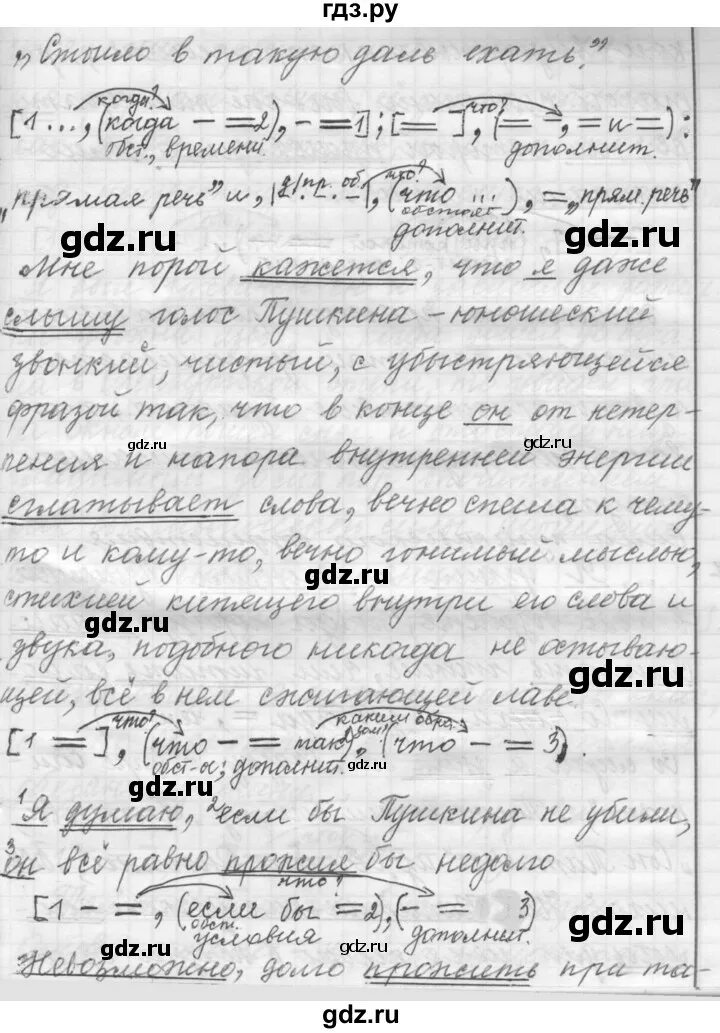 гдз.ру
„Стоило в такую даль ехать."
когда? что?
[1 ..., (когда – =2), – =1]; [= ], (= =, = и =):
обст. времени. дополнит.
что?
„прямая речь" и, |2/. пр. об.|, (что ...), =, „прям. речь"
обстоят
дополнит.
Мне порой кажется, что я даже
слышу голос Пушкина – юношеский
звонкий, чистый, с убыстряющейся
фразой так, что в конце он от нетер-
пения и напора внутренней энергии
сглатывает слова, вечно спеша к чему-
то и кому-то, вечно гонимый мыслью,
стихией кипящего внутри его слова и
звука, подобного никогда не остываю-
щей, всё в нем сжигающей лаве.
что? каким образом?
[1 = ], (что – = так), (что – = 3).
дополнит.
¹Я думаю, ²если бы Пушкина не убили,
³он всё равно прожил бы недолго
что?
[1 – =, (если бы = 2), (– = 3)
обст. условия дополнит.
Невозможно, долго прожить при та-
gdz.ru
gdz.ru
gdz.ru
gdz.ru
gdz.ru
gdz.ru
gdz.ru
gdz.ru
gdz.ru
gdz.ru
gdz.ru
gdz.ru
gdz.ru
gdz.ru